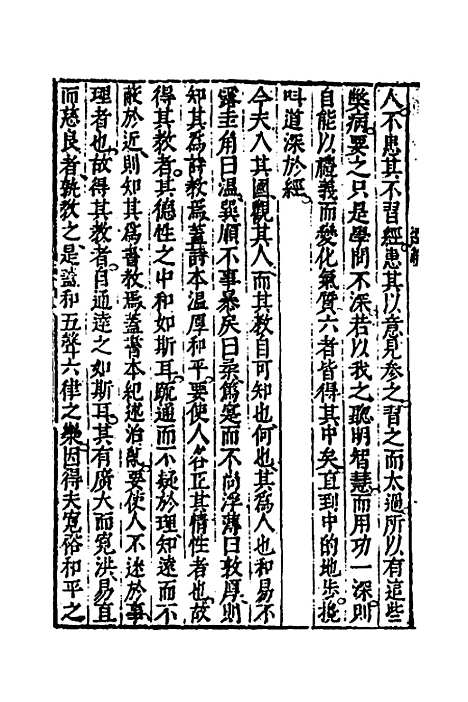 人不患其不習經患其以意見參之習之而太過所以有這些
獘病要之只是學問不深若以我之聰明智慧而用功一深則
自能以禮義而變化氣質六者皆得其中矣直到中的地步纔
叫道深於經
今夫入其國觀其人而其教自可知也何也其為人也和易不
露圭角曰溫巽順不事暴戾曰柔篤寔而不尚浮薄曰敦厚則
知其為詩教焉蓋詩本溫厚和平要使人各正其情性者也故
得其教者其德性之中和如斯耳疏通而不疑於理知遠而不
蔽於近則知其為書教焉蓋書本紀述治亂要使人不迷於事
理者也故得其教者自通達之如斯耳其有廣大而寬洪易直
而慈良者孰教之是蓋和五聲六律之樂因得夫寬裕和平之